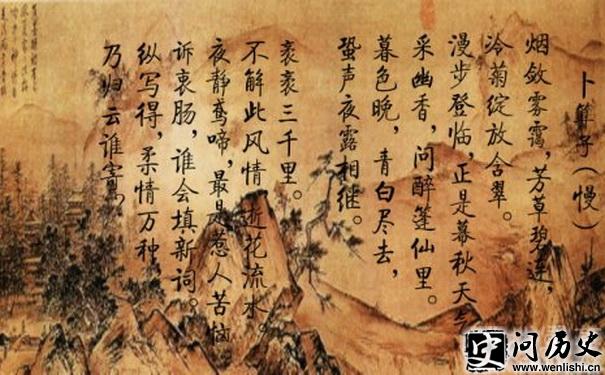 卜算子(慢)
烟敛雾霭,芳草碧连,
冷菊绽放含翠。
漫步登临,正是暮秋天气
采幽香,问醉篷仙里。
暮色晚,青白尽去,
蛩声夜露相继。
衮衮三千里。
不解此风情,逝花流水。
夜静鸢啼,最是惹人苦恼
诉衷肠,谁会填新词。
纵写得,柔情万种,
乃归云谁寄?
史 问历史
www.wenlishi.cn